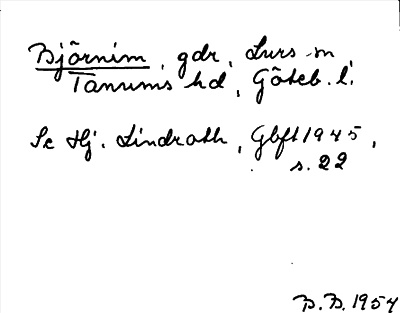 Björnim, gdr, Lurs sn
Tanums hd, Göteb. l.
Se Hj. Lindroth, Gbft 1945,
s. 22
B. B. 1954